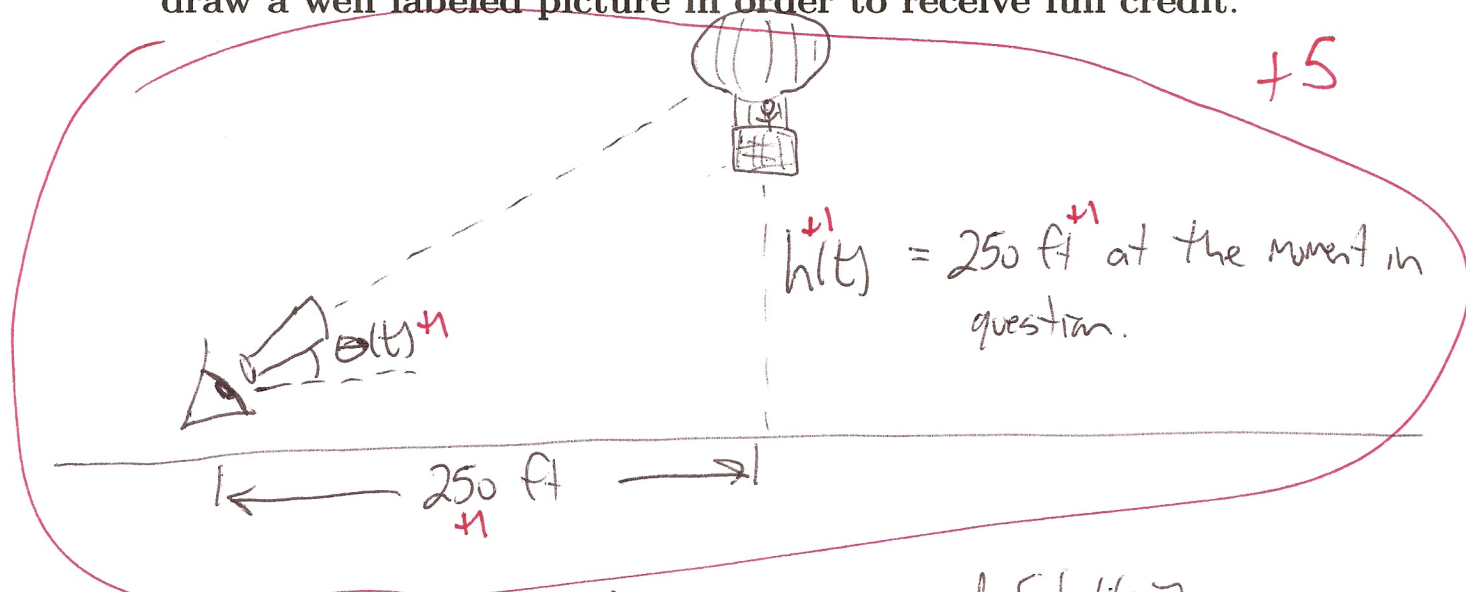 draw a well labeled picture in order to receive full credit.
+5
+1 +1
h(t) = 250 ft at the moment in
question.
θ(t) +1
250 ft
+1